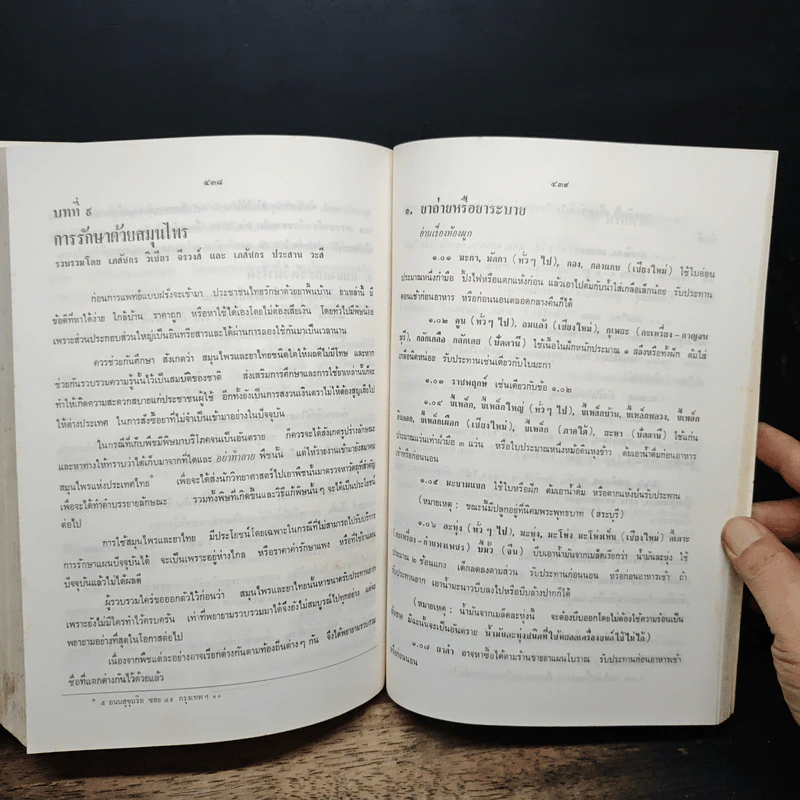 ๔๓๘
บทที่ ๙
การรักษาด้วยสมุนไพร
รวบรวมโดย เภสัชกร วิเชียร จีรวงส์ และ เภสัชกร ประสาน วะสี
ก่อนการแพทย์แบบฝรั่งจะเข้ามา ประชาชนไทยรักษาด้วยยาพื้นบ้าน ยาเหล่านี้ มี
ข้อดีที่หาได้ง่าย ใกล้บ้าน ราคาถูก หรือหาใช้ได้เองโดยไม่ต้องเสียเงิน โดยทั่วไปมีพิษน้อย
เพราะส่วนประกอบส่วนใหญ่เป็นอินทรียสารและได้ผ่านการลองใช้กันมาเป็นเวลานาน
ควรช่วยกันศึกษา สังเกตว่า สมุนไพรและยาไทยชนิดใดให้ผลดีไม่มีโทษ และหาก
ช่วยกันรวบรวมความรู้นั้นไว้เป็นสมบัติของชาติ ส่งเสริมการศึกษาและการใช้ยาเหล่านั้นก็จะ
ทำให้เกิดความสะดวกสบายแก่ประชาชนผู้ใช้ อีกทั้งยังเป็นการสงวนเงินตราไม่ให้ต้องสูญเสียไป
ให้ต่างประเทศ ในการสั่งซื้อยาที่ไม่จำเป็นเข้ามาอย่างในปัจจุบัน
ในกรณีที่เก็บพืชมีพิษมาบริโภคจนเป็นอันตราย ก็ควรจะได้สังเกตรูปร่างลักษณะ
และหาทางให้ทราบว่าได้เก็บมาจากที่ใดและ อย่าทำลาย พืชนั้น แต่ให้รายงานเข้ามายังสมาคม
สมุนไพรแห่งประเทศไทย เพื่อจะได้ส่งนักวิทยาศาสตร์ไปเอาพืชนั้นมาตรวจหาวัตถุที่สำคัญ
เพื่อจะได้ทำคำบรรยายลักษณะ รวมทั้งพิษที่เกิดขึ้นและวิธีแก้พิษนั้นๆ จะได้เป็นประโยชน์
ต่อไป
การใช้สมุนไพรและยาไทย มีประโยชน์โดยเฉพาะในกรณีที่ไม่สามารถไปรับบริการ
การรักษาแผนปัจจุบันได้ จะเป็นเพราะอยู่ห่างไกล หรือราคาค่ารักษาแพง หรือที่ใช้ยาแผน
ปัจจุบันแล้วไม่ได้ผลดี
ผู้รวบรวมใคร่ขอออกตัวไว้ก่อนว่า สมุนไพรและยาไทยนั้นหารนาครับประทานยาก
เพราะยังไม่มีใครทำไว้ครบครัน เท่าที่พยายามรวบรวมมาได้จึงยังไม่สมบูรณ์ไปทุกอย่าง แต่จะ
พยายามอย่างที่สุดในโอกาสต่อไป
เนื่องจากพืชแต่ละอย่างอาจเรียกต่างกันตามท้องถิ่นต่างๆ กัน จึงได้พยายามรวบรวม
ชื่อที่แตกต่างกันไว้ด้วยแล้ว
* ๕ ถนนสุขุมวิท ซอย ๔๕ กรุงเทพฯ ๑๐
๔๓๙
๑. ยาถ่ายหรือยาระบาย
อ่านเรื่องท้องผูก
๑.๐๑ มะกา, มัดกา (ทั่วๆ ไป), กอง, กองแกบ (เชียงใหม่) ใช้ใบอ่อน
ประมาณหนึ่งกำมือ ปิ้งไฟหรือแดดแห้งก่อน แล้วเอาไปต้มกับน้ำใส่เกลือเล็กน้อย รับประทาน
ตอนเช้าก่อนอาหาร หรือก่อนนอนตลอดกลางคืนก็ได้
๑.๐๒ คูน (ทั่วๆ ไป), ลมแล้ง (เชียงใหม่), กุเพยะ (กะเหรี่ยง–กาญจน
บุรี), กลักเกลือ กลักเคย (ปัตตานี) ใช้เนื้อในฝักหนักประมาณ ๑ สลึงหรือทั้งฝัก ต้มใส่
เกลือนิดหน่อย รับประทานเช่นเดียวกับใบมะกา
๑.๐๓ ราชพฤกษ์ เช่นเดียวกับข้อ ๑.๐๒
๑.๐๔ ขี้เหล็ก, ขี้เหล็กใหญ่ (ทั่วๆ ไป), ขี้เหล็กบ้าน, ขี้เหล็กหลวง, ขี้เหล็ก
ขี้เหล็กเผือก (เชียงใหม่), ขี้เหล็ก (ภาคใต้), ยะหา (ปัตตานี) ใช้แก่น
ประมาณแว่นเท่าฝ่ามือ ๓ แว่น หรือใบประมาณหนึ่งหม้อดินหุงข้าว ต้มเอาน้ำดื่มก่อนอาหาร
เช้าหรือก่อนนอน
๑.๐๕ มะขามแขก ใช้ใบหรือฝัก ต้มเอาน้ำดื่ม หรือตากแห้งบดรับประทาน
(หมายเหตุ : ขณะนี้มีปลูกอยู่ที่นิคมพระพุทธบาท (สระบุรี)
๑.๐๖ ละหุ่ง (ทั่วๆ ไป), มะหุ่ง, มะโห่ง มะโห่งหิน (เชียงใหม่)
(กะเหรี่ยง–กำแพงเพชร) (จีน) บีบเอาน้ำมันจากเมล็ดเรียกว่า น้ำมันละหุ่ง ใช้
ประมาณ ๒ ช้อนแกง เด็กลดลงตามส่วน รับประทานก่อนนอน หรือก่อนอาหารเช้า ถ้า
รับประทานยาก เอาน้ำมะนาวบีบลงไปหรือบีบล้างปากก็ได้
(หมายเหตุ : น้ำมันจากเมล็ดละหุ่งนี้ จะต้องบีบออกโดยไม่ต้องใช้ความร้อนเป็น
อันขาด มิฉะนั้นจะเป็นอันตราย
๑.๐๗ ยาดำ อาจหาซื้อได้ตามร้านขายยาแผนโบราณ รับประทานก่อนอาหารเช้า
หรือก่อนนอน